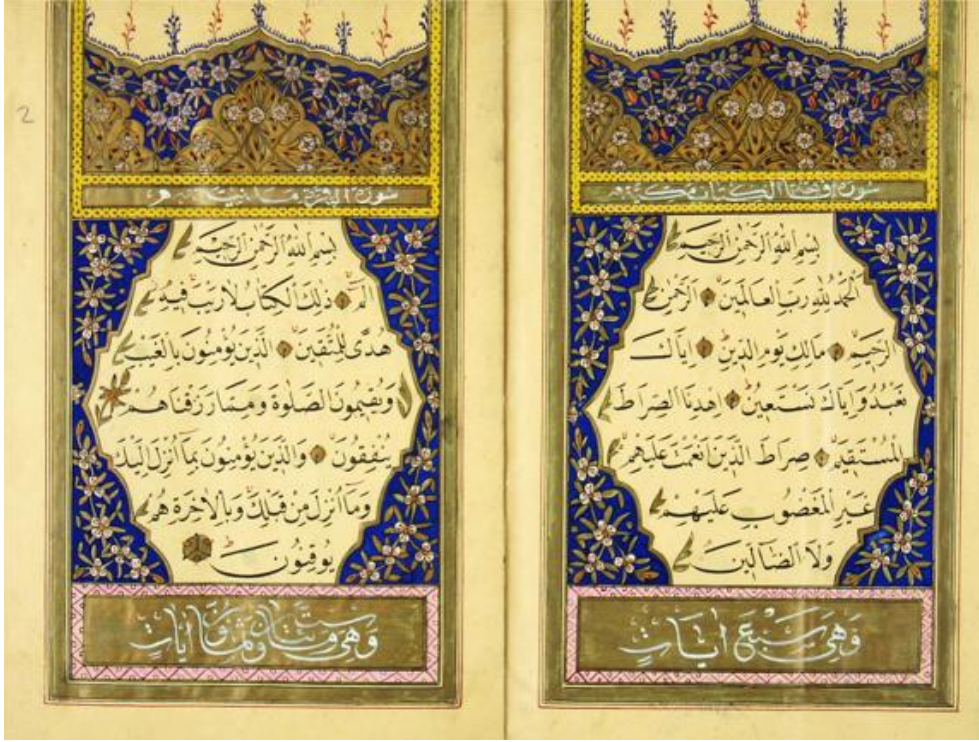 سورة فاتحة الكتاب مكية
بسم الله الرحمن الرحيم
الحمد لله رب العالمين الرحمن
الرحيم مالك يوم الدين اياك
نعبد واياك نستعين اهدنا الصراط
المستقيم صراط الذين انعمت عليهم
غير المغضوب عليهم
ولا الضالين
وهي سبع ايات
سورة البقرة مدنية
بسم الله الرحمن الرحيم
الم ذلك الكتاب لا ريب فيه
هدى للمتقين الذين يؤمنون بالغيب
ويقيمون الصلوة ومما رزقناهم
ينفقون والذين يؤمنون بما أنزل اليك
وما أنزل من قبلك وبالاخرة هم
يوقنون
وهي مائتان وست وثمانون ايات
2